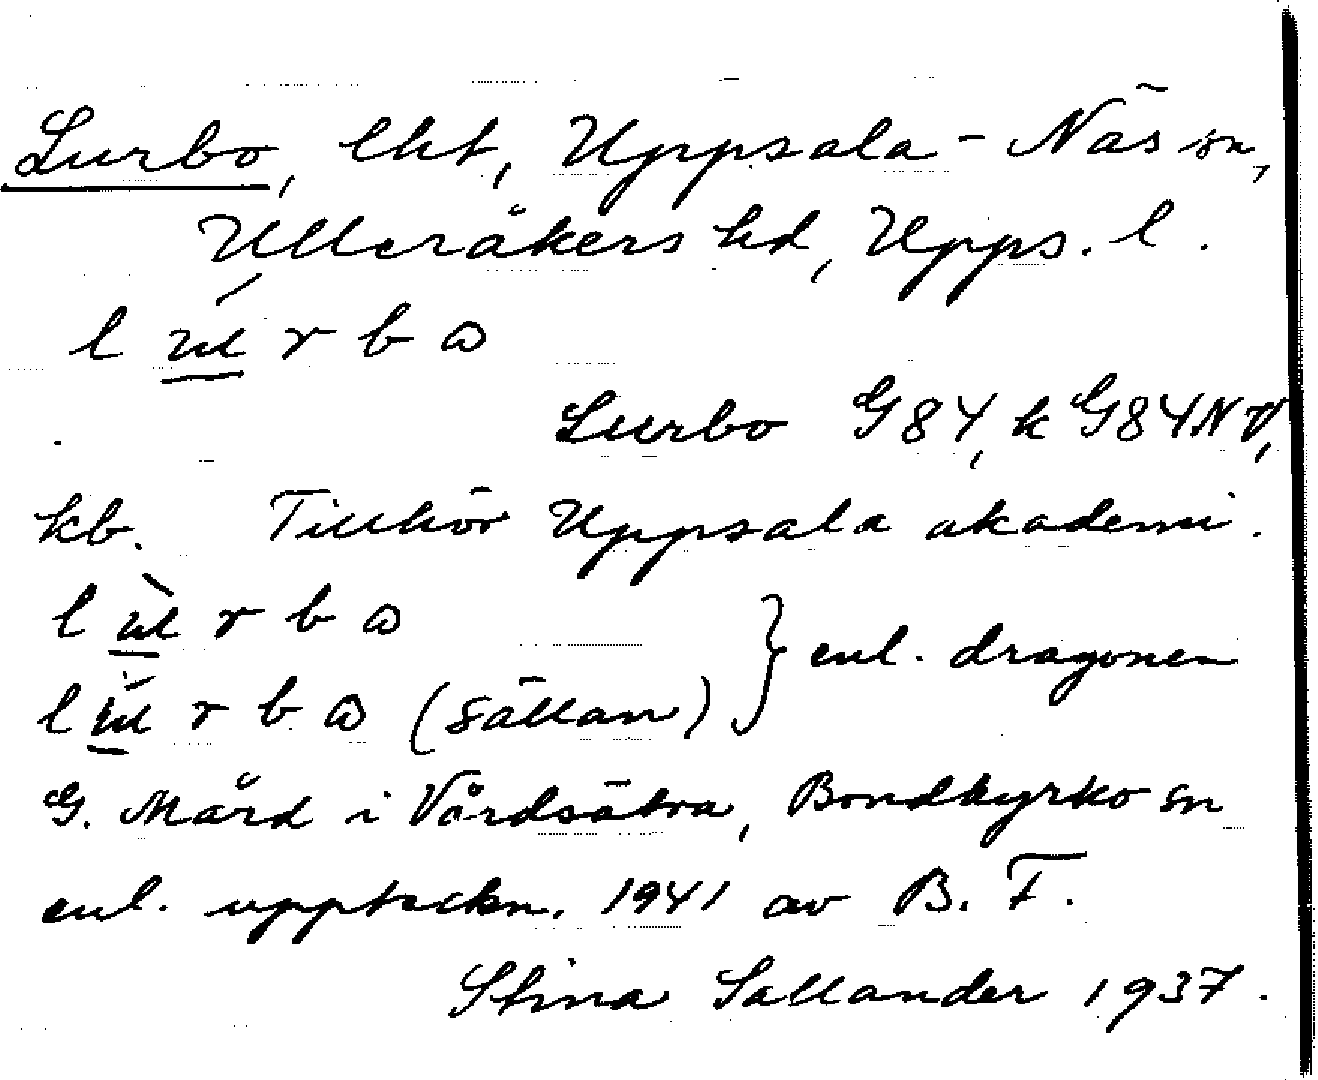 Lurbo, lht, Uppsala-Näs sn,
Ulleråkers hd, Upps. l.
l u r b ω
Lurbo G84, k G84NV,
kb. Tillhör Uppsala akademi.
l u r b ω
l u r b ω (sällan) } enl. dragonen
G. Mård i Vårdsätra, Bondkyrko sn
enl. uppteckn. 1941 av B. F.
Stina Sallander 1937.